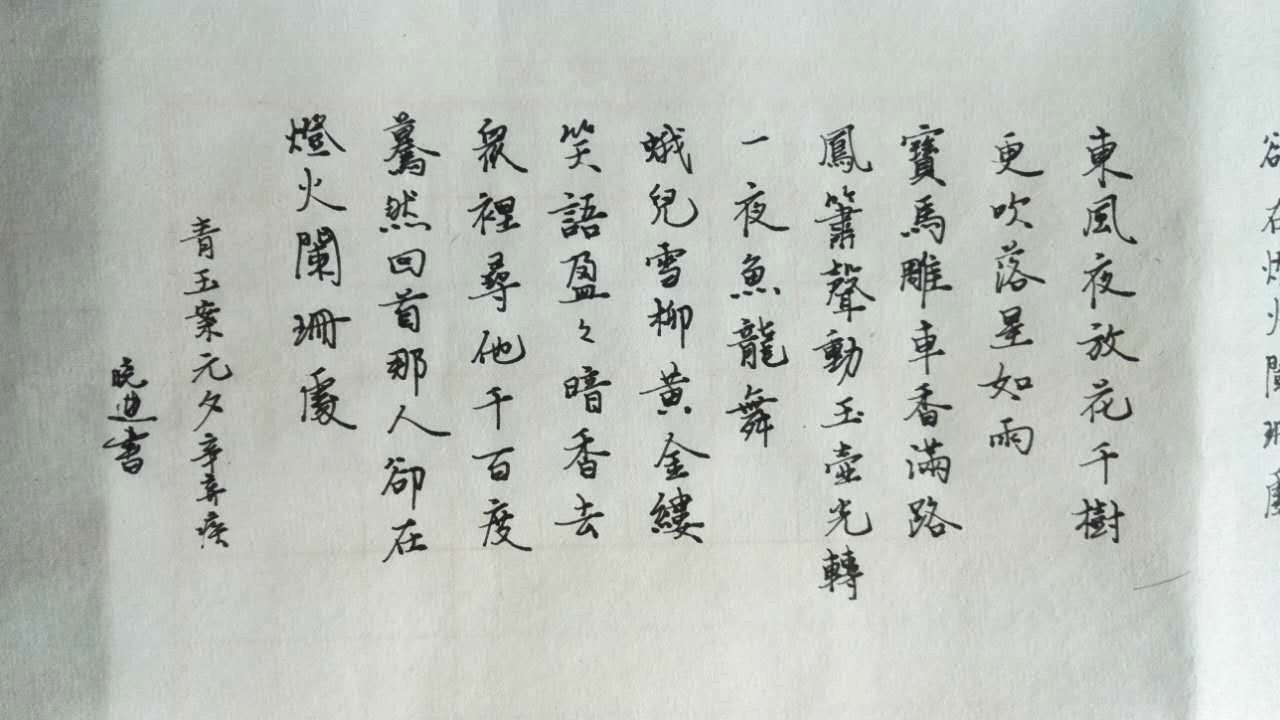 東風夜放花千樹
更吹落星如雨
寶馬雕車香滿路
鳳簫聲動玉壺光轉
一夜魚龍舞
蛾兒雪柳黃金縷
笑語盈々暗香去
眾裡尋他千百度
驀然回首那人卻在
燈火闌珊處
青玉案元夕辛弃疾
晓書
卻在燈火闌珊處